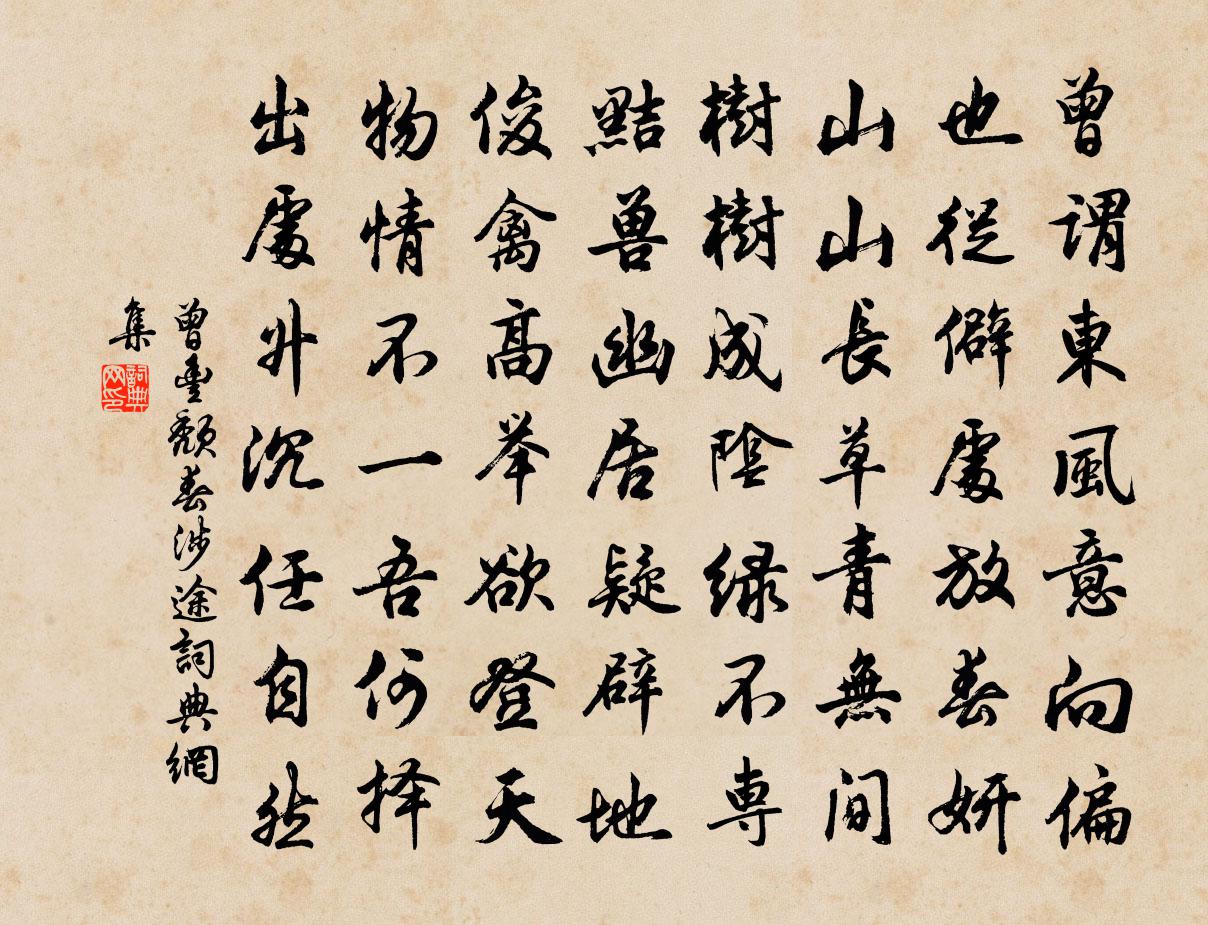 曾謂東風意向偏
也從僻處放春妍
山山長草青無間
樹樹成陰緑不專
黠兽幽居疑辟地
俊禽高举欲登天
物情不一吾何择
出處升沉任自然
曾豐頽春涉途詞典網
集
詞典网印